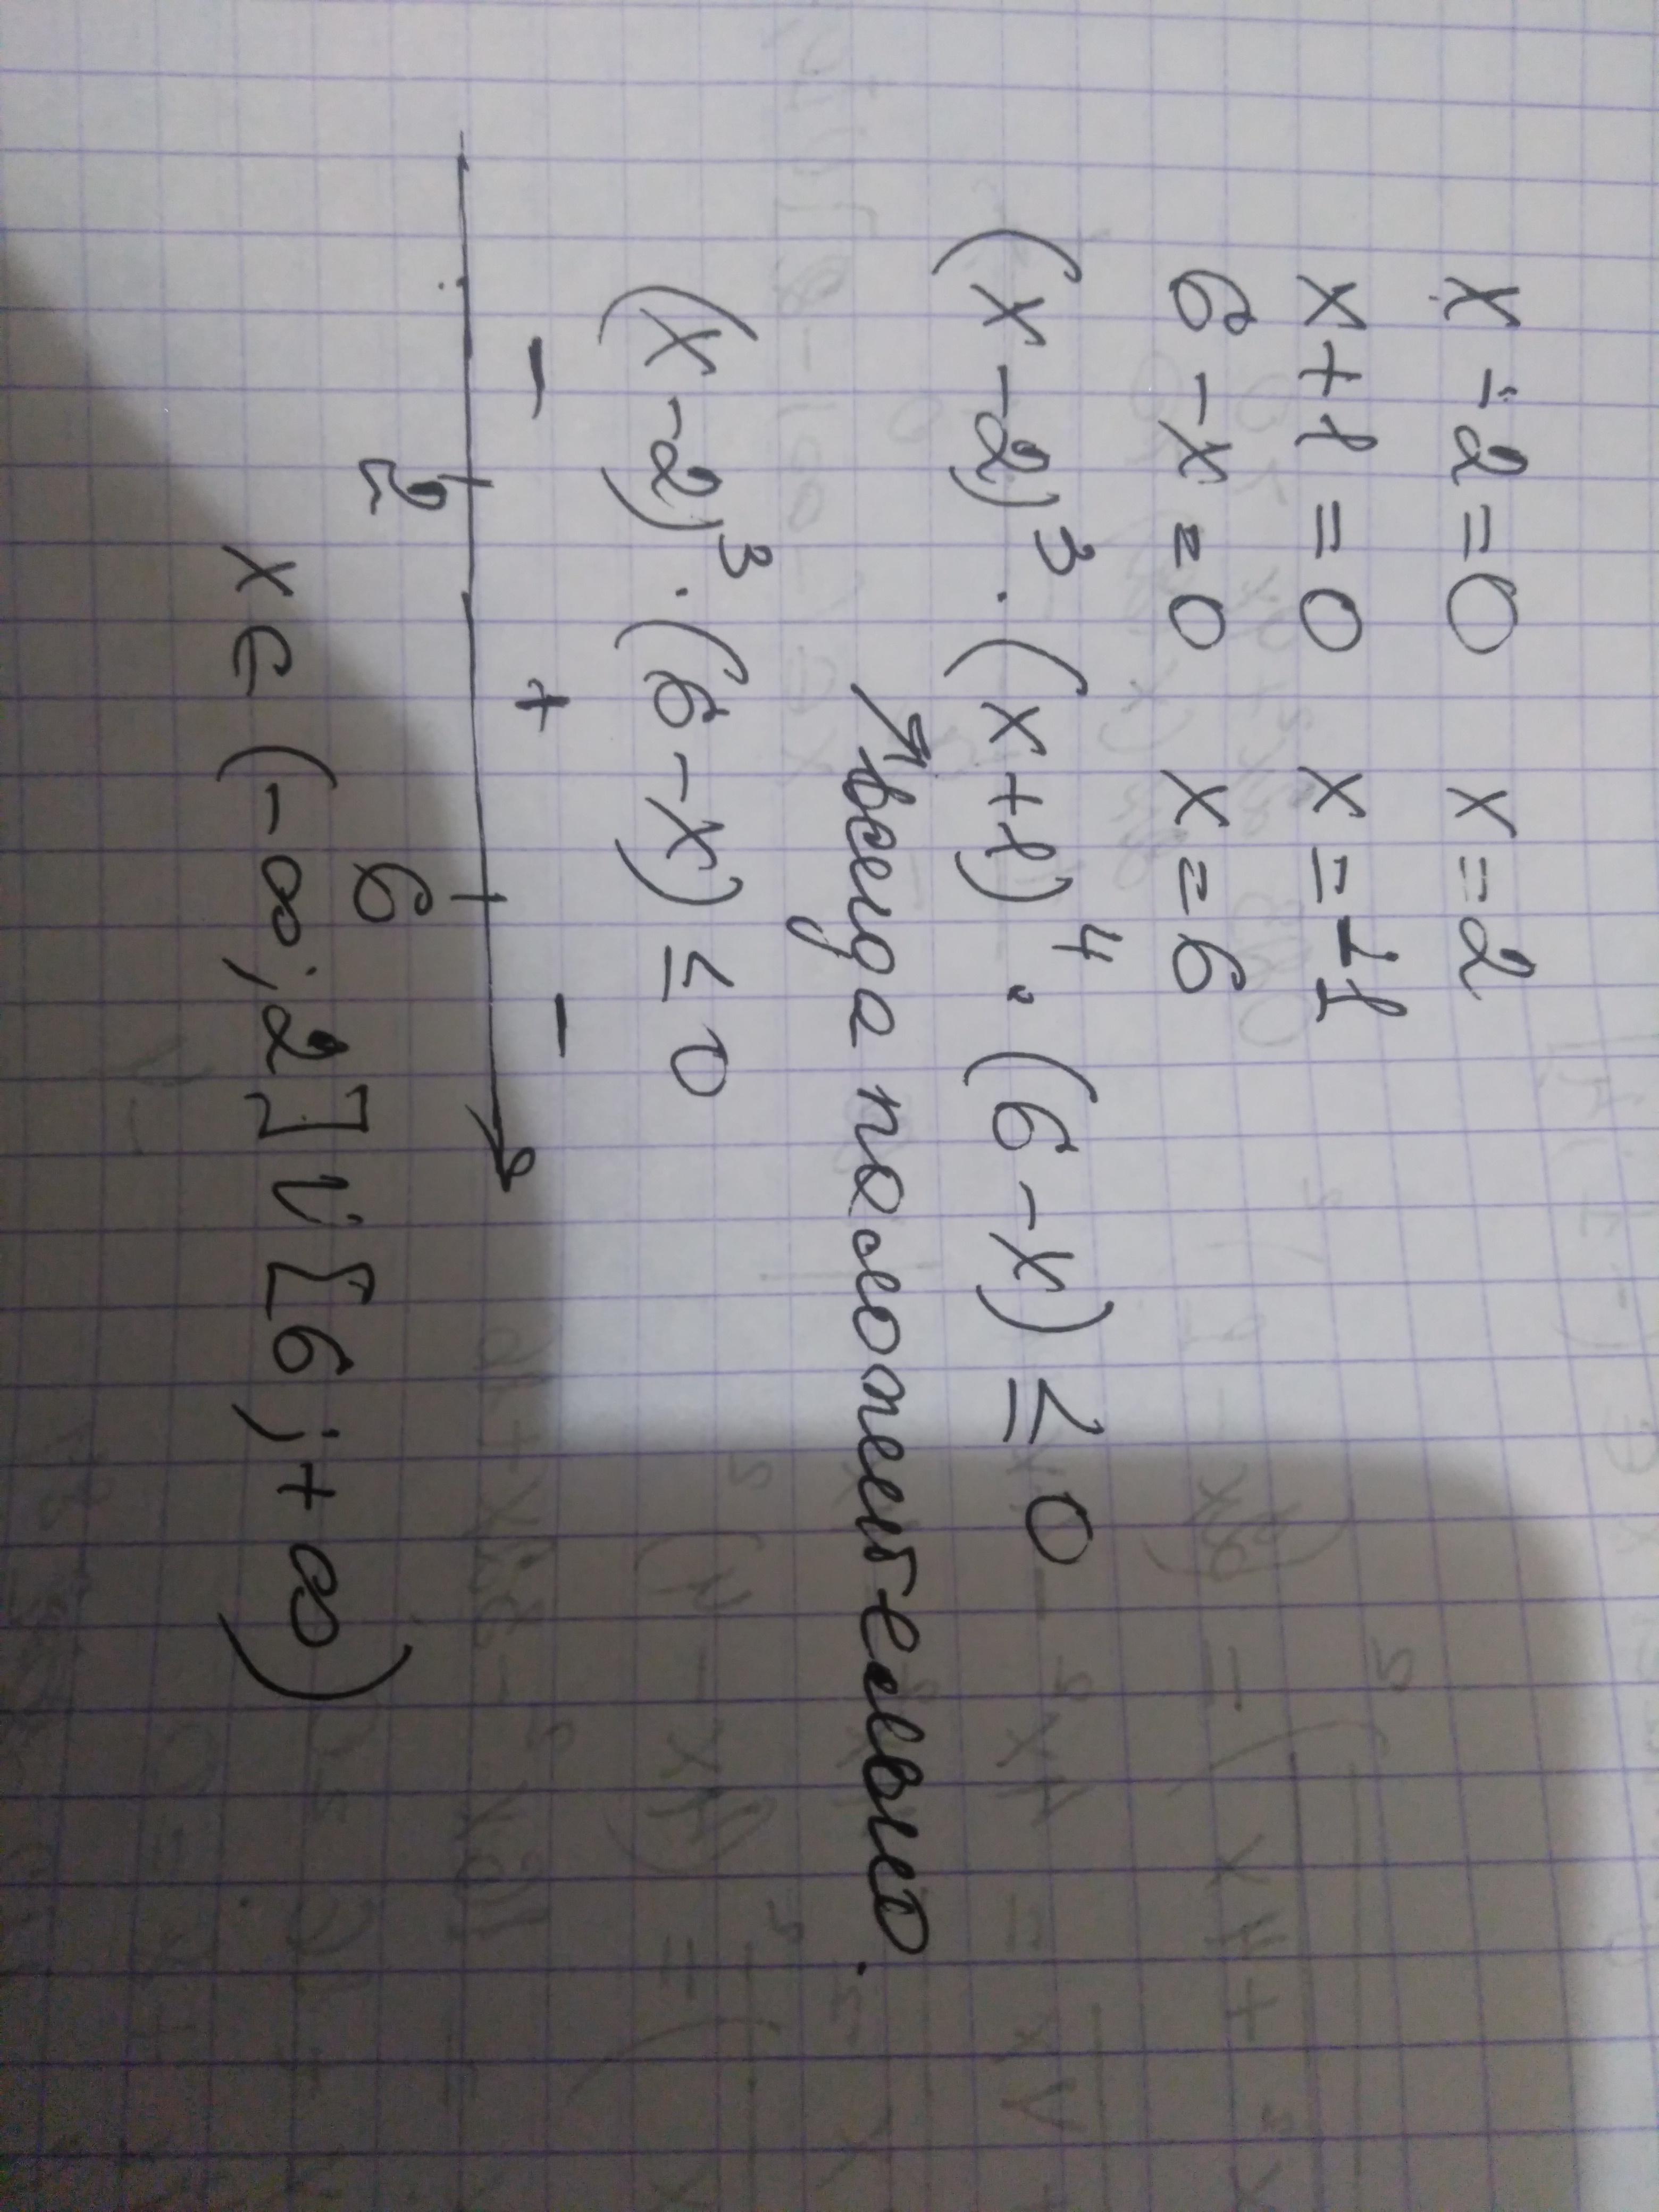 x-2=0 x=2
x+1=0 x=-1
6-x=0 x=6
(x-2)³·(x+1)⁴·(6-x)≤0
↗ всегда положительно.
(x-2)³·(6-x)≤0
- + -
2 6
x∈(-∞;2]∪[6;+∞)